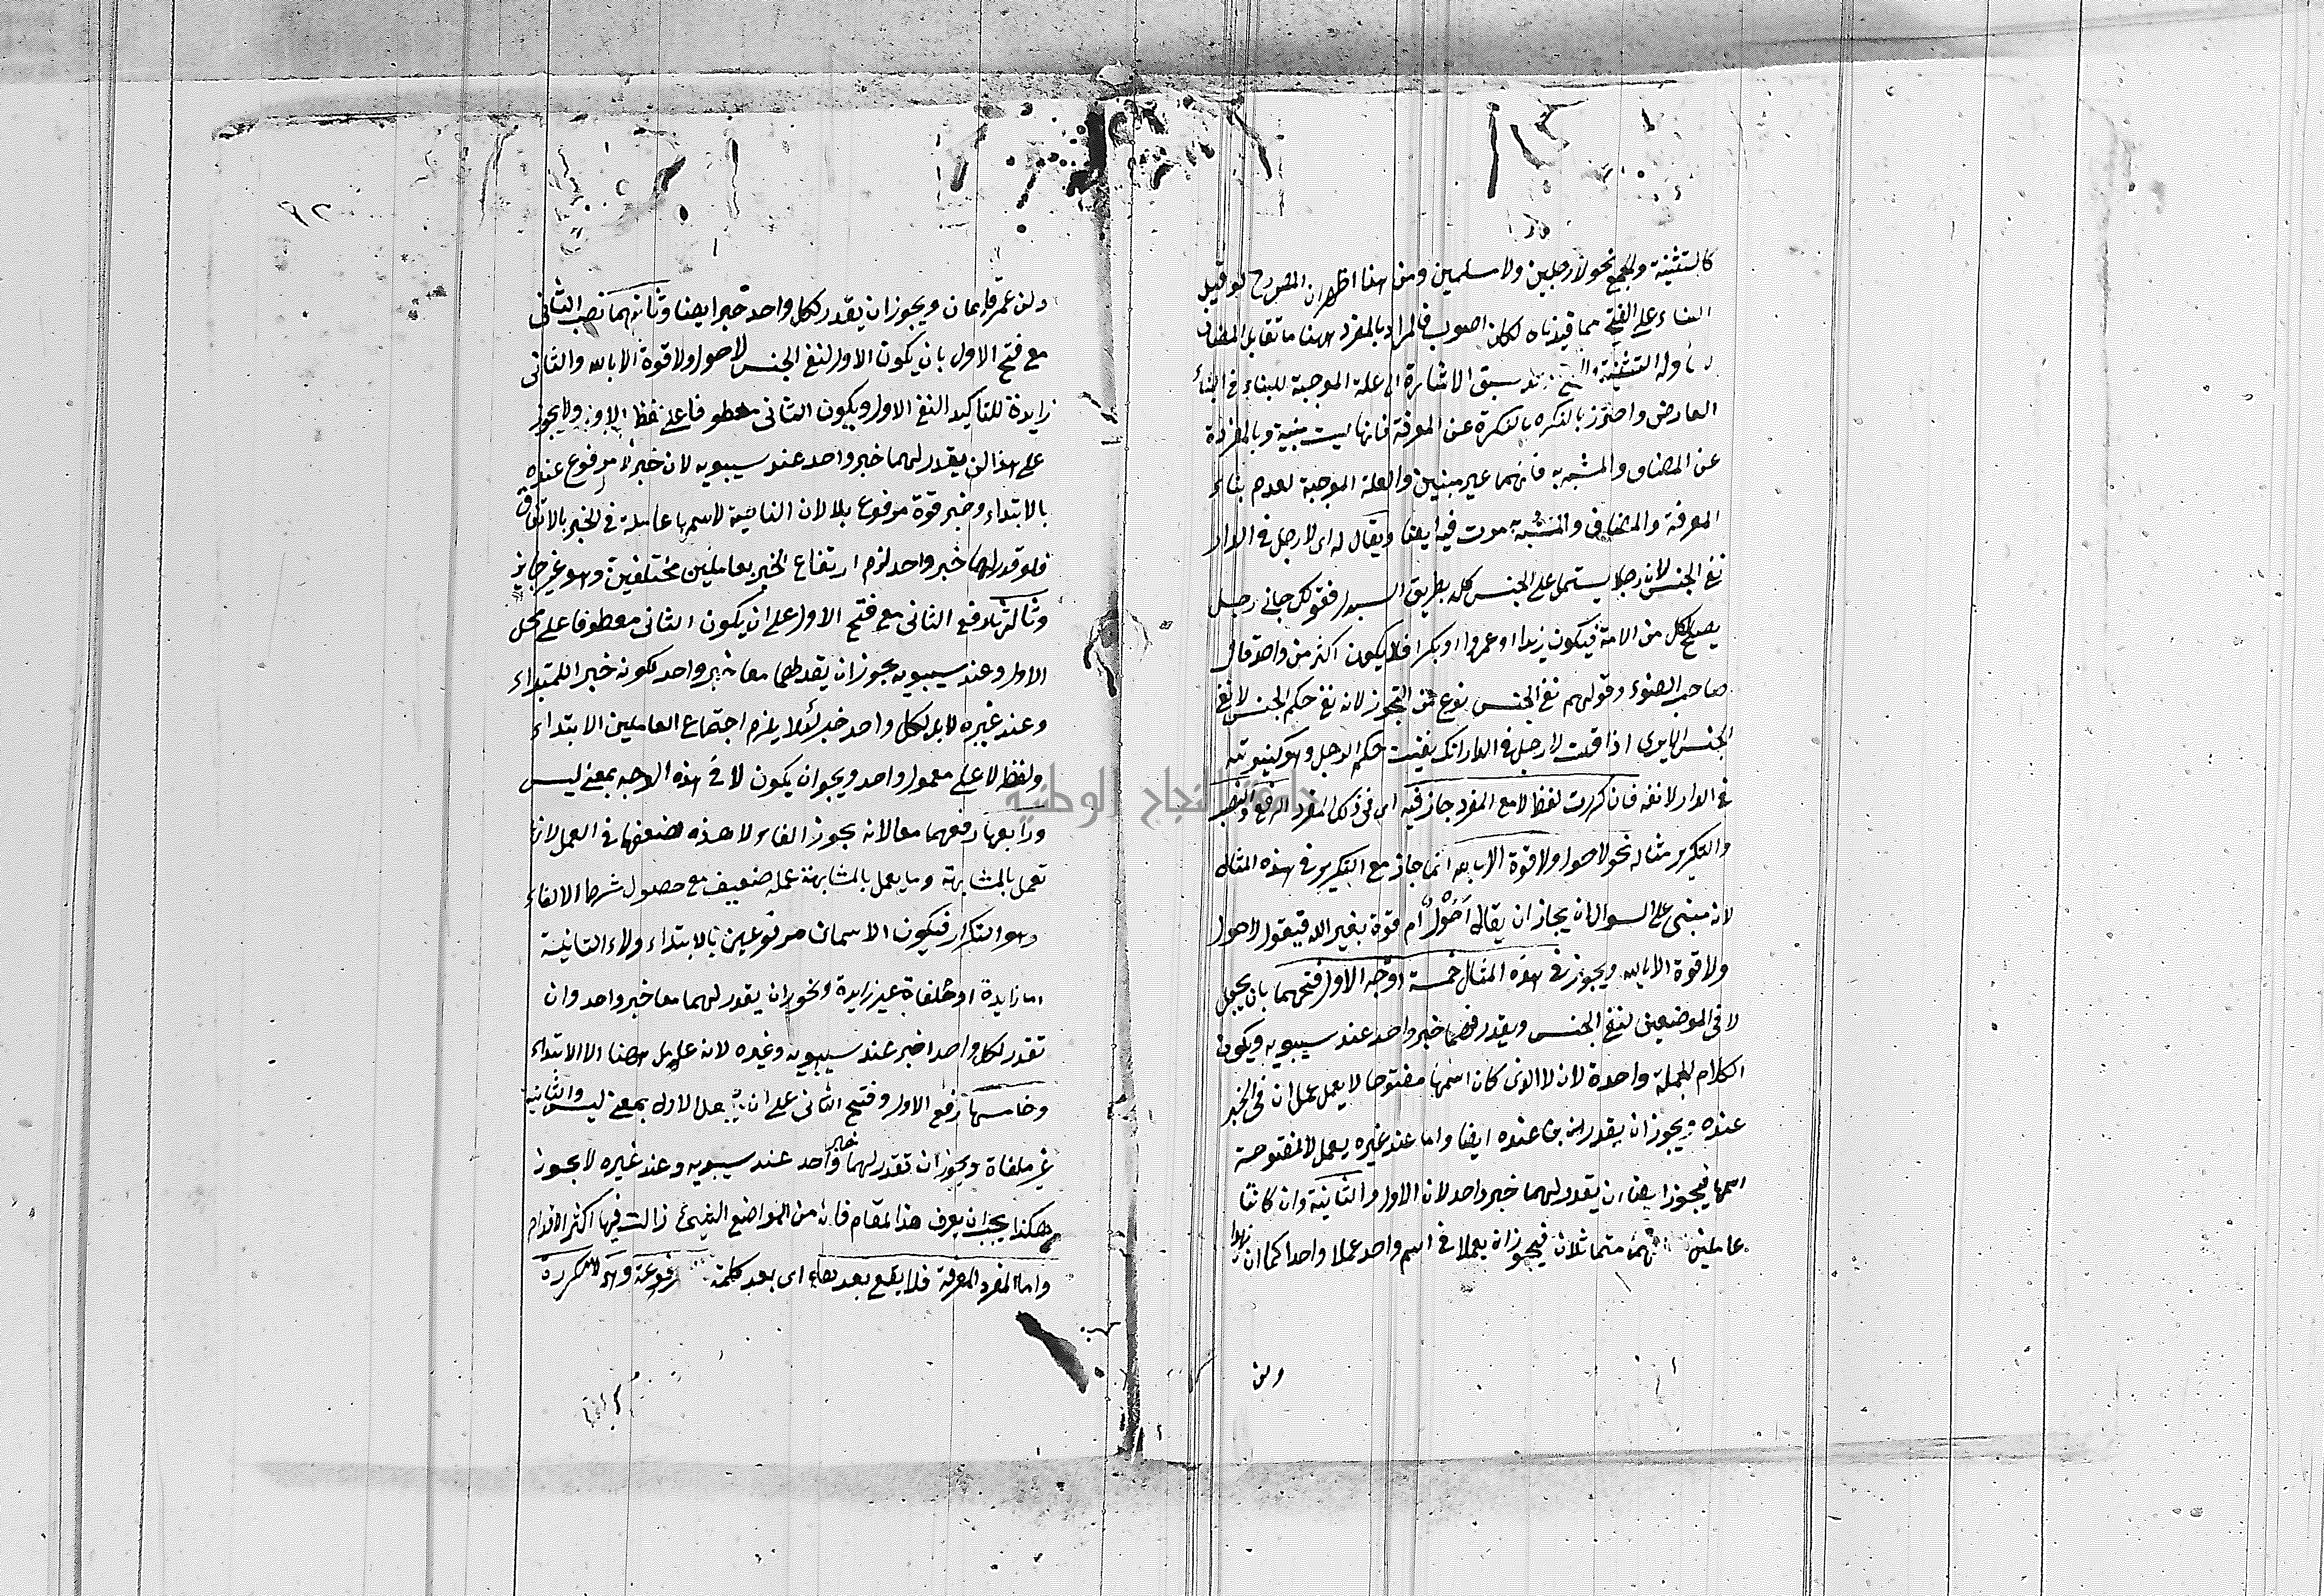 كالتثنية والجمع نحو لا رجلين ولا مسلمين ومن هنا اظهر ان المصرح لو قيل
البناء على الفتح مما قيدناه لكان اصوب فالمراد بالمفرد ههنا ما تقابل المضاف
التثنية سبق الاشارة الى علة الموجبة للبناء في البناء
العارض واحترز بالنكرة بالنكرة عن المعرفة فانها ليست مبنية وبالمفردة
عن المضاف والمشبه به فانهما غير مبنيين والعلة الموجبة لعدم بناء
المعرفة والمضاف والمشبه به مرت فيه ايضا ويقال له اى لا رجل في الدار
نفى الجنس لان رجلا يشتمل على الجنس كله بطريق البدل فقولك جانى رجل
يصلح لكل من الامة فيكون زيدا او عمروا او بكرا فلا يكون اكثر من واحد قال
صاحب الضوء وقولهم نفى الجنس نوع من التجوز لانه نفى حكم الجنس لا نفى
الجنس الا يرى اذا قلت لا رجل في الدار انك نفيت حكم الرجل وهو كينونته
في الدار لا نفسه فان كررت لفظ لا مع المفرد جاز فيه اى في ذلك المفرد الرفع والنصب
والتكرير مثاله نحو لا حول ولا قوة الا بالله انما جاز مع التكرير في هذه المثال
لانه مبنى على السوال ان يجاز ان يقال أحَوْلٌ أم قوة بغير الله فيقول لا حول
ولا قوة الا بالله ويجوز في هذه المثال خمسة اوجه الاول فتحهما بان يجعل
لا في الموضعين لنفى الجنس ويقدر لهما خبر واحد عند سيبويه ويكون
الكلام لجملة واحدة لان لا الذى كان اسمها مفتوحا لا يعمل عمل ان في الخبر
عنده ويجوز ان يقدر عنده ايضا واما عند غيره يعمل لا المفتوحة
اسمها فيجوز ايضا ان يقدر لهما خبر واحد لان الاول والثانية وان كانتا
عاملتين متماثلان فيجوز ان يعملا في اسم واحد عملا واحدا كما ان زيدا
وان
وان عمرا قايمان ويجوز ان يقدر لكل واحد خبر ايضا وثانيهما نصب الثانى
مع فتح الاول بان يكون الاول لنفى الجنس لا حول ولا قوة الا بالله والثانى
زايدة للتاكيد النفى الاول ويكون الثانى معطوفا على لفظ الاول ولا يجوز
على هذا ان يقدر لهما خبر واحد عند سيبويه لان خبر لا مرفوع عنده
بالابتداء وخبر قوة مرفوع بلا لان الناصبة لاسمها عاملة في الخبر بالاتفاق
فلو قدر لهما خبر واحد لزم ارتفاع الخبر بعاملين مختلفين وهو غير جايز
وثالثها رفع الثانى مع فتح الاول على ان يكون الثانى معطوفا على محل
الاول وعند سيبويه يجوز ان يقدر لهما معا خبر واحد لكونه خبرا للمبتداء
وعند غيره لا بد لكل واحد خبر لئلا يلزم اجتماع العاملين الابتداء
ولفظ لا على معمول واحد ويجوز ان يكون لا في هذه الوجه بمعنى ليس
ورابعها رفعهما معا لانه يجوز الغاء لا هذه لضعفها في العمل لانها
تعمل بالمشابهة وما يعمل بالمشابهة عمله ضعيف مع حصول شرط الالغاء
وهو التكرار فيكون الاسمان مرفوعين بالابتداء ولاء الثانية
اما زايدة او ملغاة غير زايدة ويجوز ان يقدر لهما معا خبر واحد وان
تقدر لكل واحد خبر عند سيبويه وغيره لانه عامل هنا الا الابتداء
وخامسها رفع الاول وفتح الثانى على ان يجعل الاول بمعنى ليس والثانية
غير ملغاة ويجوز ان تقدر لهما خبر واحد عند سيبويه وعند غيره لا يجوز
هكذا يجب ان يعرف هذا المقام فانه من المواضع التى زالت فيها اكثر الاقدام
واما المفرد المعرفة فلا يقع بعد لها اى بعد كلمة مرفوعة مكررة